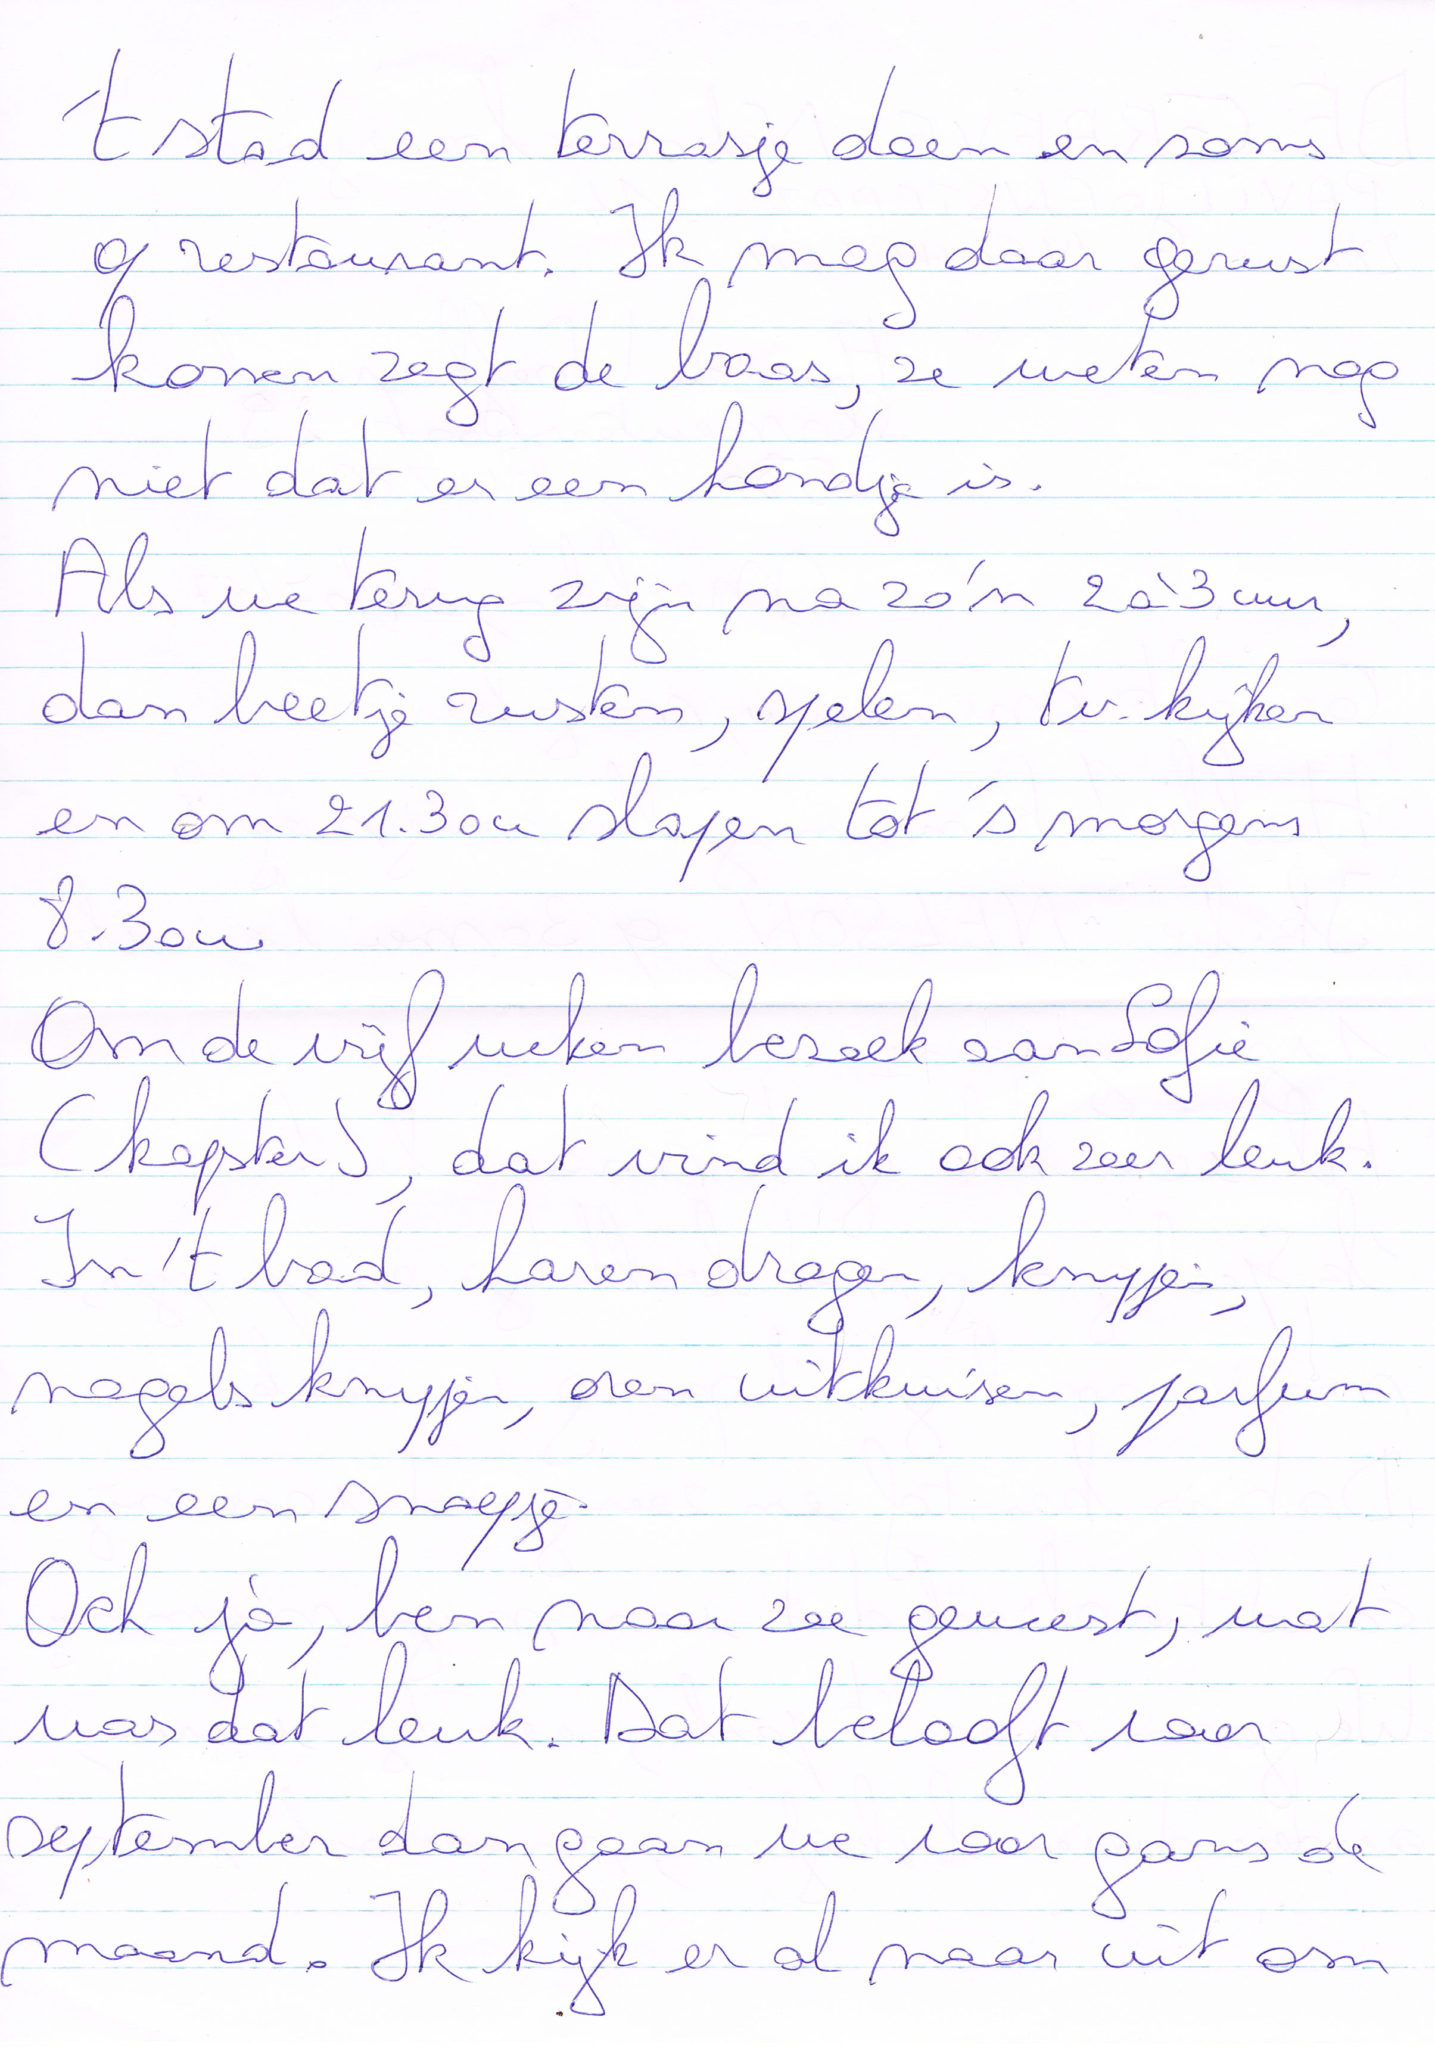 't stad een terrasje doen en soms
op restaurant. Ik mag daar gerust
komen zegt de baas, ze weten nog
niet dat er een hondje is.
Als we terug zijn na zo'n 2 à 3 uur,
dan beetje rusten, spelen, tv. kijken
en om 21.30u slapen tot 's morgens
8.30u.
Om de vijf weken bezoek aan Sofie
(kapster), dat vind ik ook zeer leuk.
In 't bad, haren drogen, knippen,
nagels knippen, oren uitkuisen, parfum
en een snoepje.
Och ja, ben naar zee geweest, wat
was dat leuk. Dat belooft voor
september dan gaan we voor gans de
maand. Ik kijk er al naar uit om